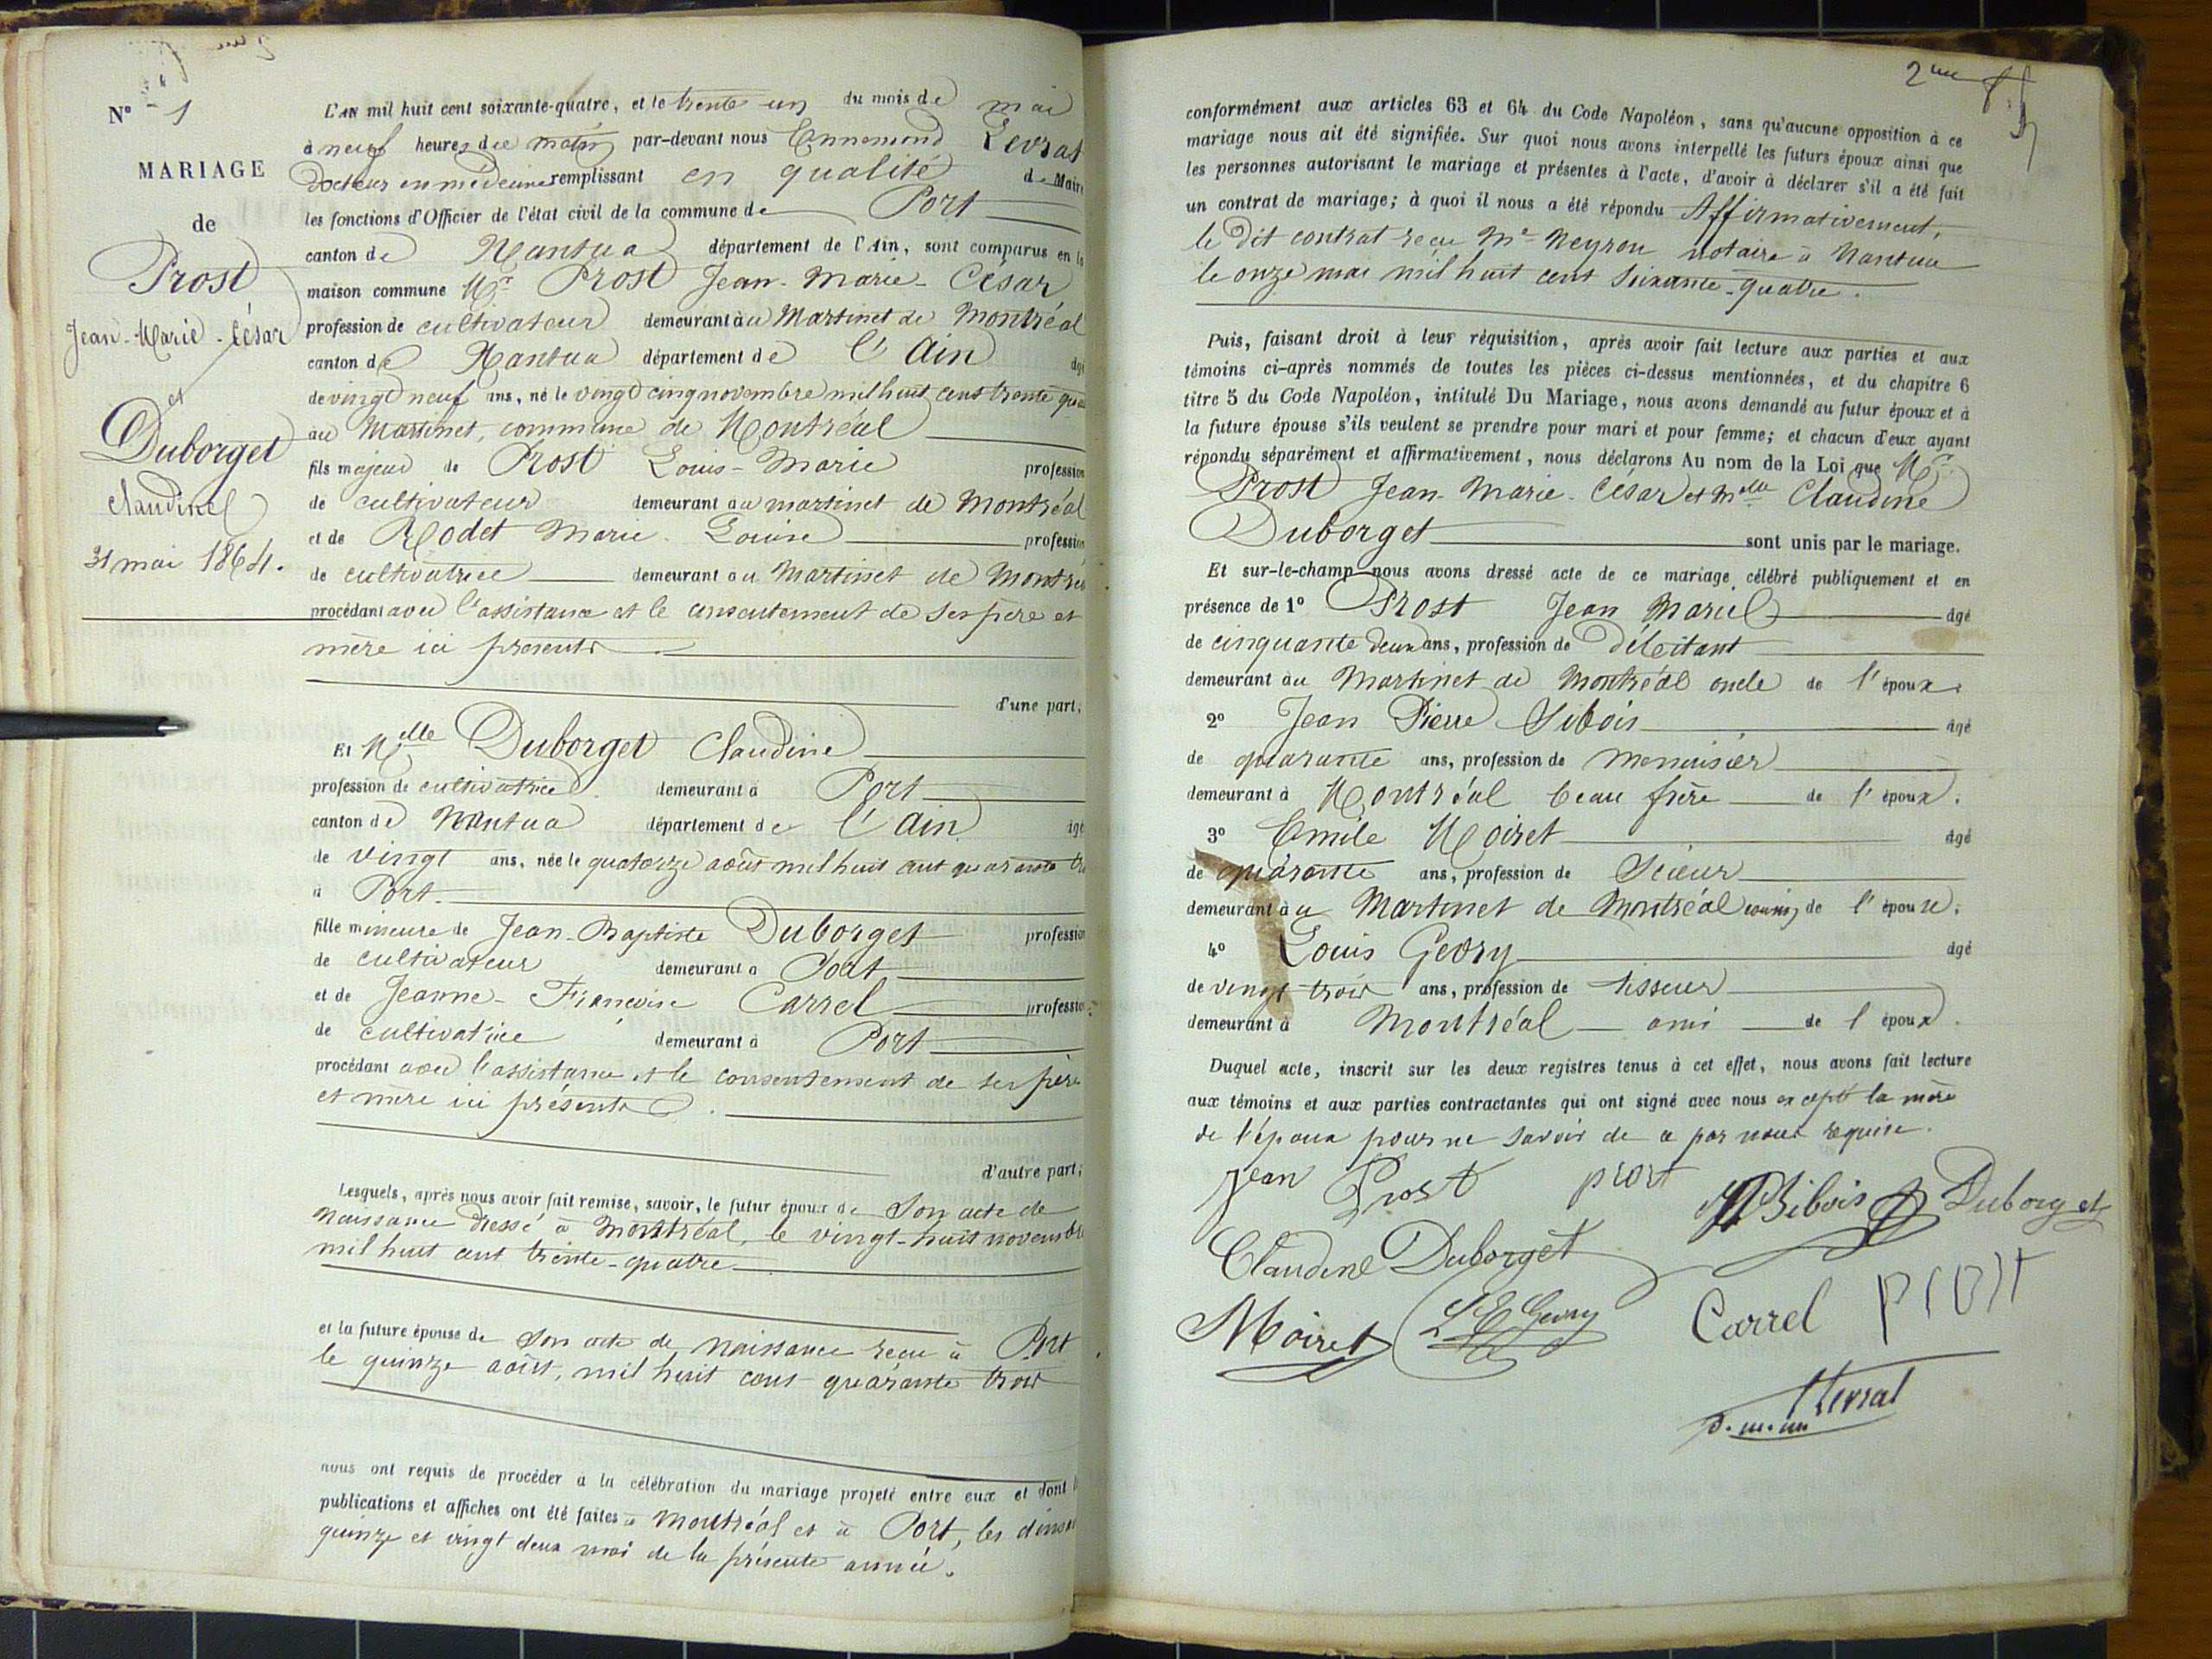 N° 1
MARIAGE
de
Prost
Jean-Marie-César
et
Duborget
Claudine
31 mai 1864.
L'AN mil huit cent soixante-quatre, et le trente un du mois de mai
à neuf heures du matin par-devant nous Ennemond Levrat
Docteur en médecine remplissant en qualité de Maire
les fonctions d'Officier de l'état civil de la commune de Port
canton de Nantua département de l'Ain, sont comparus en la
maison commune Mr Prost Jean-Marie-César
profession de cultivateur demeurant au Martinet de Montréal
canton de Nantua département de l'Ain âgé
de vingt neuf ans, né le vingt cinq novembre mil huit cent trente
au Martinet, commune de Montréal
fils majeur de Prost Louis-Marie profession
de cultivateur demeurant au martinet de Montréal
et de Rodet Marie-Louise profession
de cultivatrice demeurant au Martinet de Montréal
procédant avec l'assistance et le consentement de ses père et
mère ici présents
d'une part;
Et Melle Duborget Claudine
profession de cultivatrice demeurant à Port
canton de Nantua département de l'Ain âgé
de vingt ans, née le quatorze août mil huit cent quarante
à Port.
fille mineure de Jean-Baptiste Duborget profession
de cultivateur demeurant à Port
et de Jeanne-Françoise Carrel profession
de cultivatrice demeurant à Port
procédant avec l'assistance et le consentement de ses père
et mère ici présents.
d'autre part;
Lesquels, après nous avoir fait remise, savoir, le futur époux de Son acte de
naissance dressé à Montréal, le vingt-huit novembre
mil huit cent trente-quatre
et la future épouse de Son acte de naissance reçu à Port
le quinze août, mil huit cent quarante trois
nous ont requis de procéder à la célébration du mariage projeté entre eux et dont
publications et affiches ont été faites à Montréal et à Port, les
quinze et vingt deux mai de la présente année.
2me
conformément aux articles 63 et 64 du Code Napoléon, sans qu'aucune opposition à ce
mariage nous ait été signifiée. Sur quoi nous avons interpellé les futurs époux ainsi que
les personnes autorisant le mariage et présentes à l'acte, d'avoir à déclarer s'il a été fait
un contrat de mariage; à quoi il nous a été répondu Affirmativement,
le dit contrat reçu Me Neyron notaire à Nantua
le onze mai mil huit cent soixante-quatre.
Puis, faisant droit à leur réquisition, après avoir fait lecture aux parties et aux
témoins ci-après nommés de toutes les pièces ci-dessus mentionnées, et du chapitre 6
titre 5 du Code Napoléon, intitulé Du Mariage, nous avons demandé au futur époux et à
la future épouse s'ils veulent se prendre pour mari et pour femme; et chacun d'eux ayant
répondu séparément et affirmativement, nous déclarons Au nom de la Loi que Mr
Prost Jean-Marie-César et Melle Claudine
Duborget sont unis par le mariage.
Et sur-le-champ nous avons dressé acte de ce mariage célébré publiquement et en
présence de 1° Prost Jean Marie âgé
de cinquante deux ans, profession de débitant
demeurant au Martinet de Montréal oncle de l'époux.
2° Jean Pierre Sibois âgé
de quarante ans, profession de menuisier
demeurant à Montréal beau frère de l'époux.
3° Emile Moiret âgé
de quarante ans, profession de Scieur
demeurant au Martinet de Montréal cousin de l'épouse.
4° Louis Geory âgé
de vingt trois ans, profession de tisseur
demeurant à Montréal ami de l'époux.
Duquel acte, inscrit sur les deux registres tenus à cet effet, nous avons fait lecture
aux témoins et aux parties contractantes qui ont signé avec nous excepté la mère
de l'époux pour ne savoir de ce par nous requise.
jean Prost prost Sibois Duborget
Claudine Duborget
Moiret Geory Carrel prost
Levrat